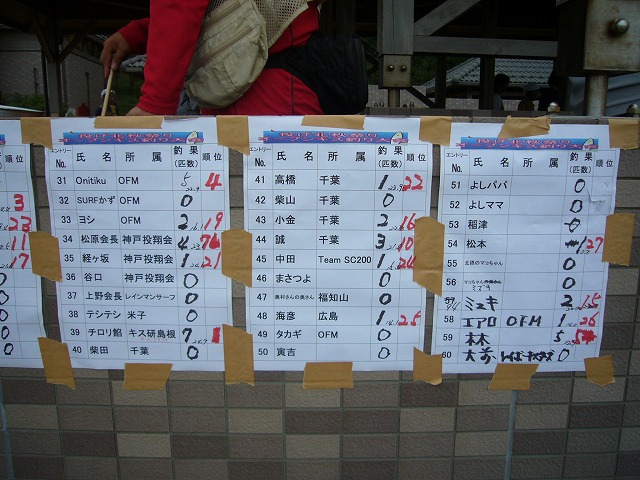 順位
3
23
11
17
エントリー No. 氏名 所属 釣果(匹数) 順位
31 Onitiku OFM 5 4
32 SURFかず OFM 0
33 ヨシ OFM 2 19
34 松原会長 神戸投翔会 4
35 経ヶ坂 神戸投翔会 1 21
36 谷口 神戸投翔会 0
37 上野会長 レインマンサーフ 0
38 テシテシ 米子 0
39 チロリ餡 キス研島根 7 1
40 柴田 千葉 0
エントリー No. 氏名 所属 釣果(匹数) 順位
41 高橋 千葉 1 22
42 柴山 千葉 0
43 小金 千葉 2 16
44 誠 千葉 3 10
45 中田 Team SC200 1 24
46 まさつよ 0
47 奥村さんの奥さん 福知山 0
48 海彦 広島 1 25
49 タカギ OFM 0
50 寅吉 0
エントリー No. 氏名 所属 釣果(匹数) 順位
51 よしパパ 0
52 よしママ 0
53 稲津 0
54 松本 1 27
55 北田のマコちゃん 0
56 0
ミユキ 2 15
58 エアロ OFM 1 26
59 5 5
60 0